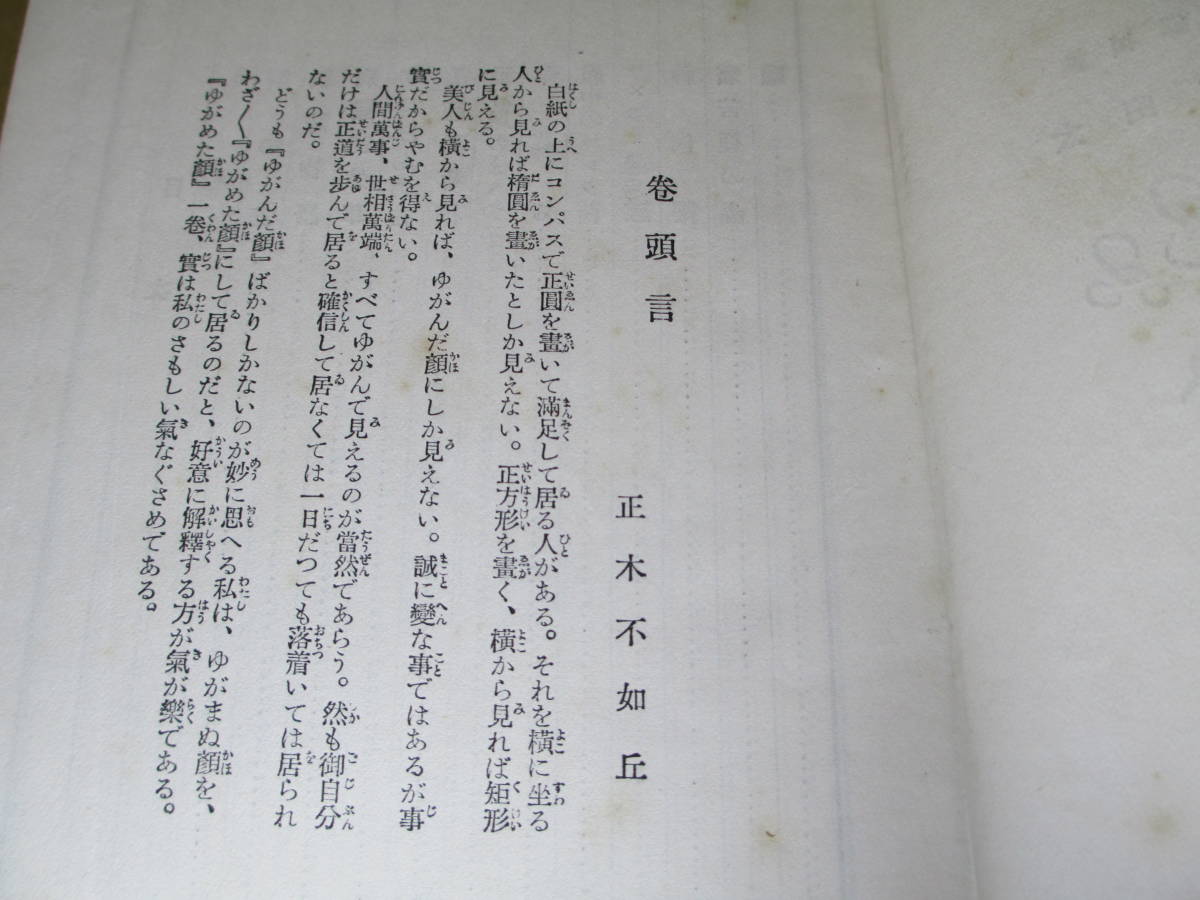 卷頭言
正木不如丘
白紙の上にコンパスで正圓を畫いて滿足して居る人がある。それを橫に坐る
人から見れば楕圓を畫いたとしか見えない。正方形を畫く、橫から見れば矩形
に見える。
美人も橫から見れば、ゆがんだ顏にしか見えない。誠に變な事ではあるが事
實だからやむを得ない。
人間萬事、世相萬端、すべてゆがんで見えるのが當然であらう。然も御自分
だけは正道を步んで居ると確信して居なくては一日だつても落着いては居られ
ないのだ。
どうも『ゆがんだ顏』ばかりしかないのが妙に思へる私は、ゆがまぬ顏を、
わざ〱『ゆがめた顏』にして居るのだと、好意に解釋する方が氣が樂である。
『ゆがめた顏』一卷、實は私のさもしい氣なぐさめである。